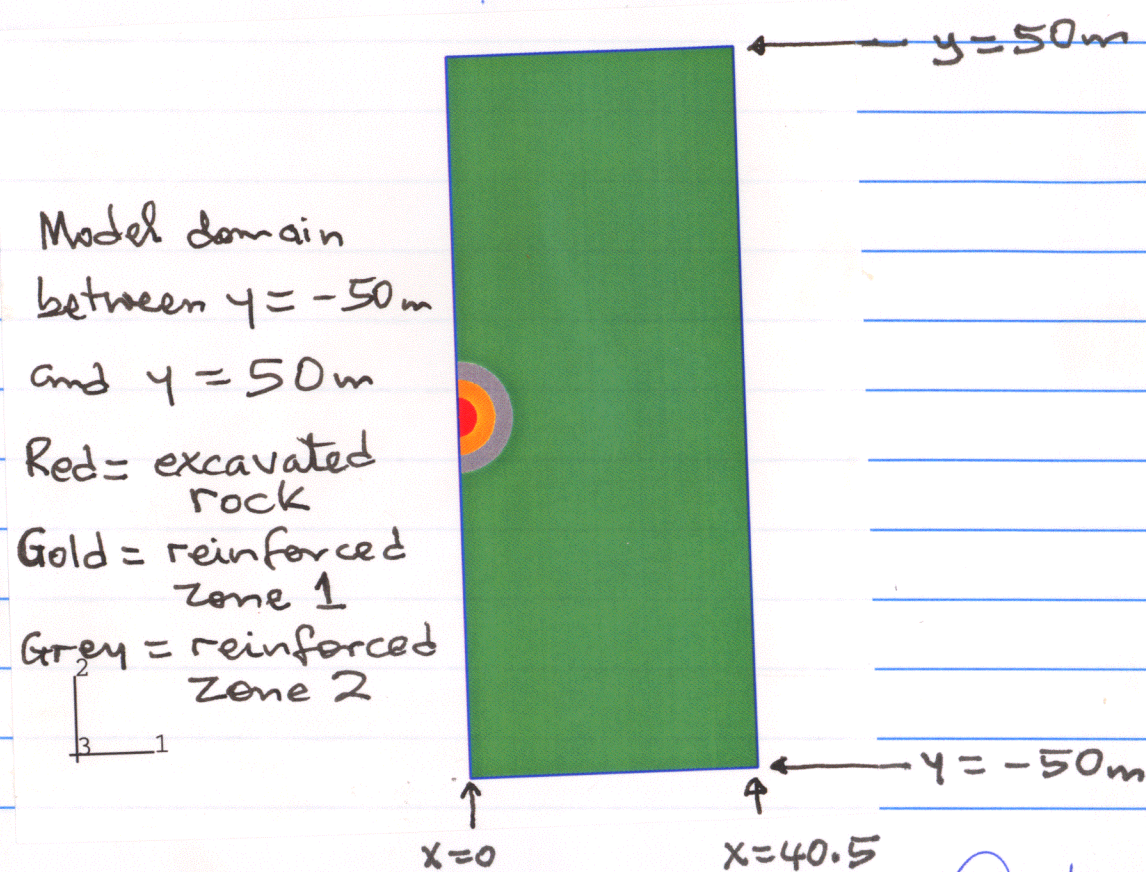 y = 50m
Model domain
between y = -50m
and y = 50m
Red = excavated
rock
Gold = reinforced
zone 1
Grey = reinforced
zone 2
2
3 1
y = -50m
x=0
x=40.5